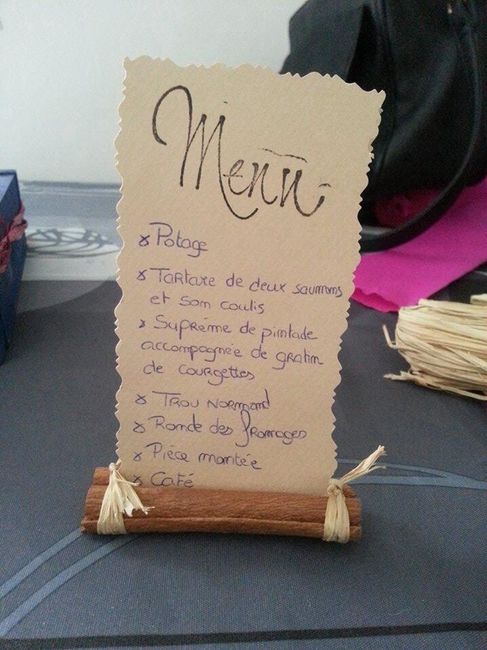 Menu
x Potage
x Tartare de deux saumons
et son coulis
x Suprême de pintade
accompagnée de gratin
de courgettes
x Trou normand
x Ronde des fromages
x Pièce montée
x Café